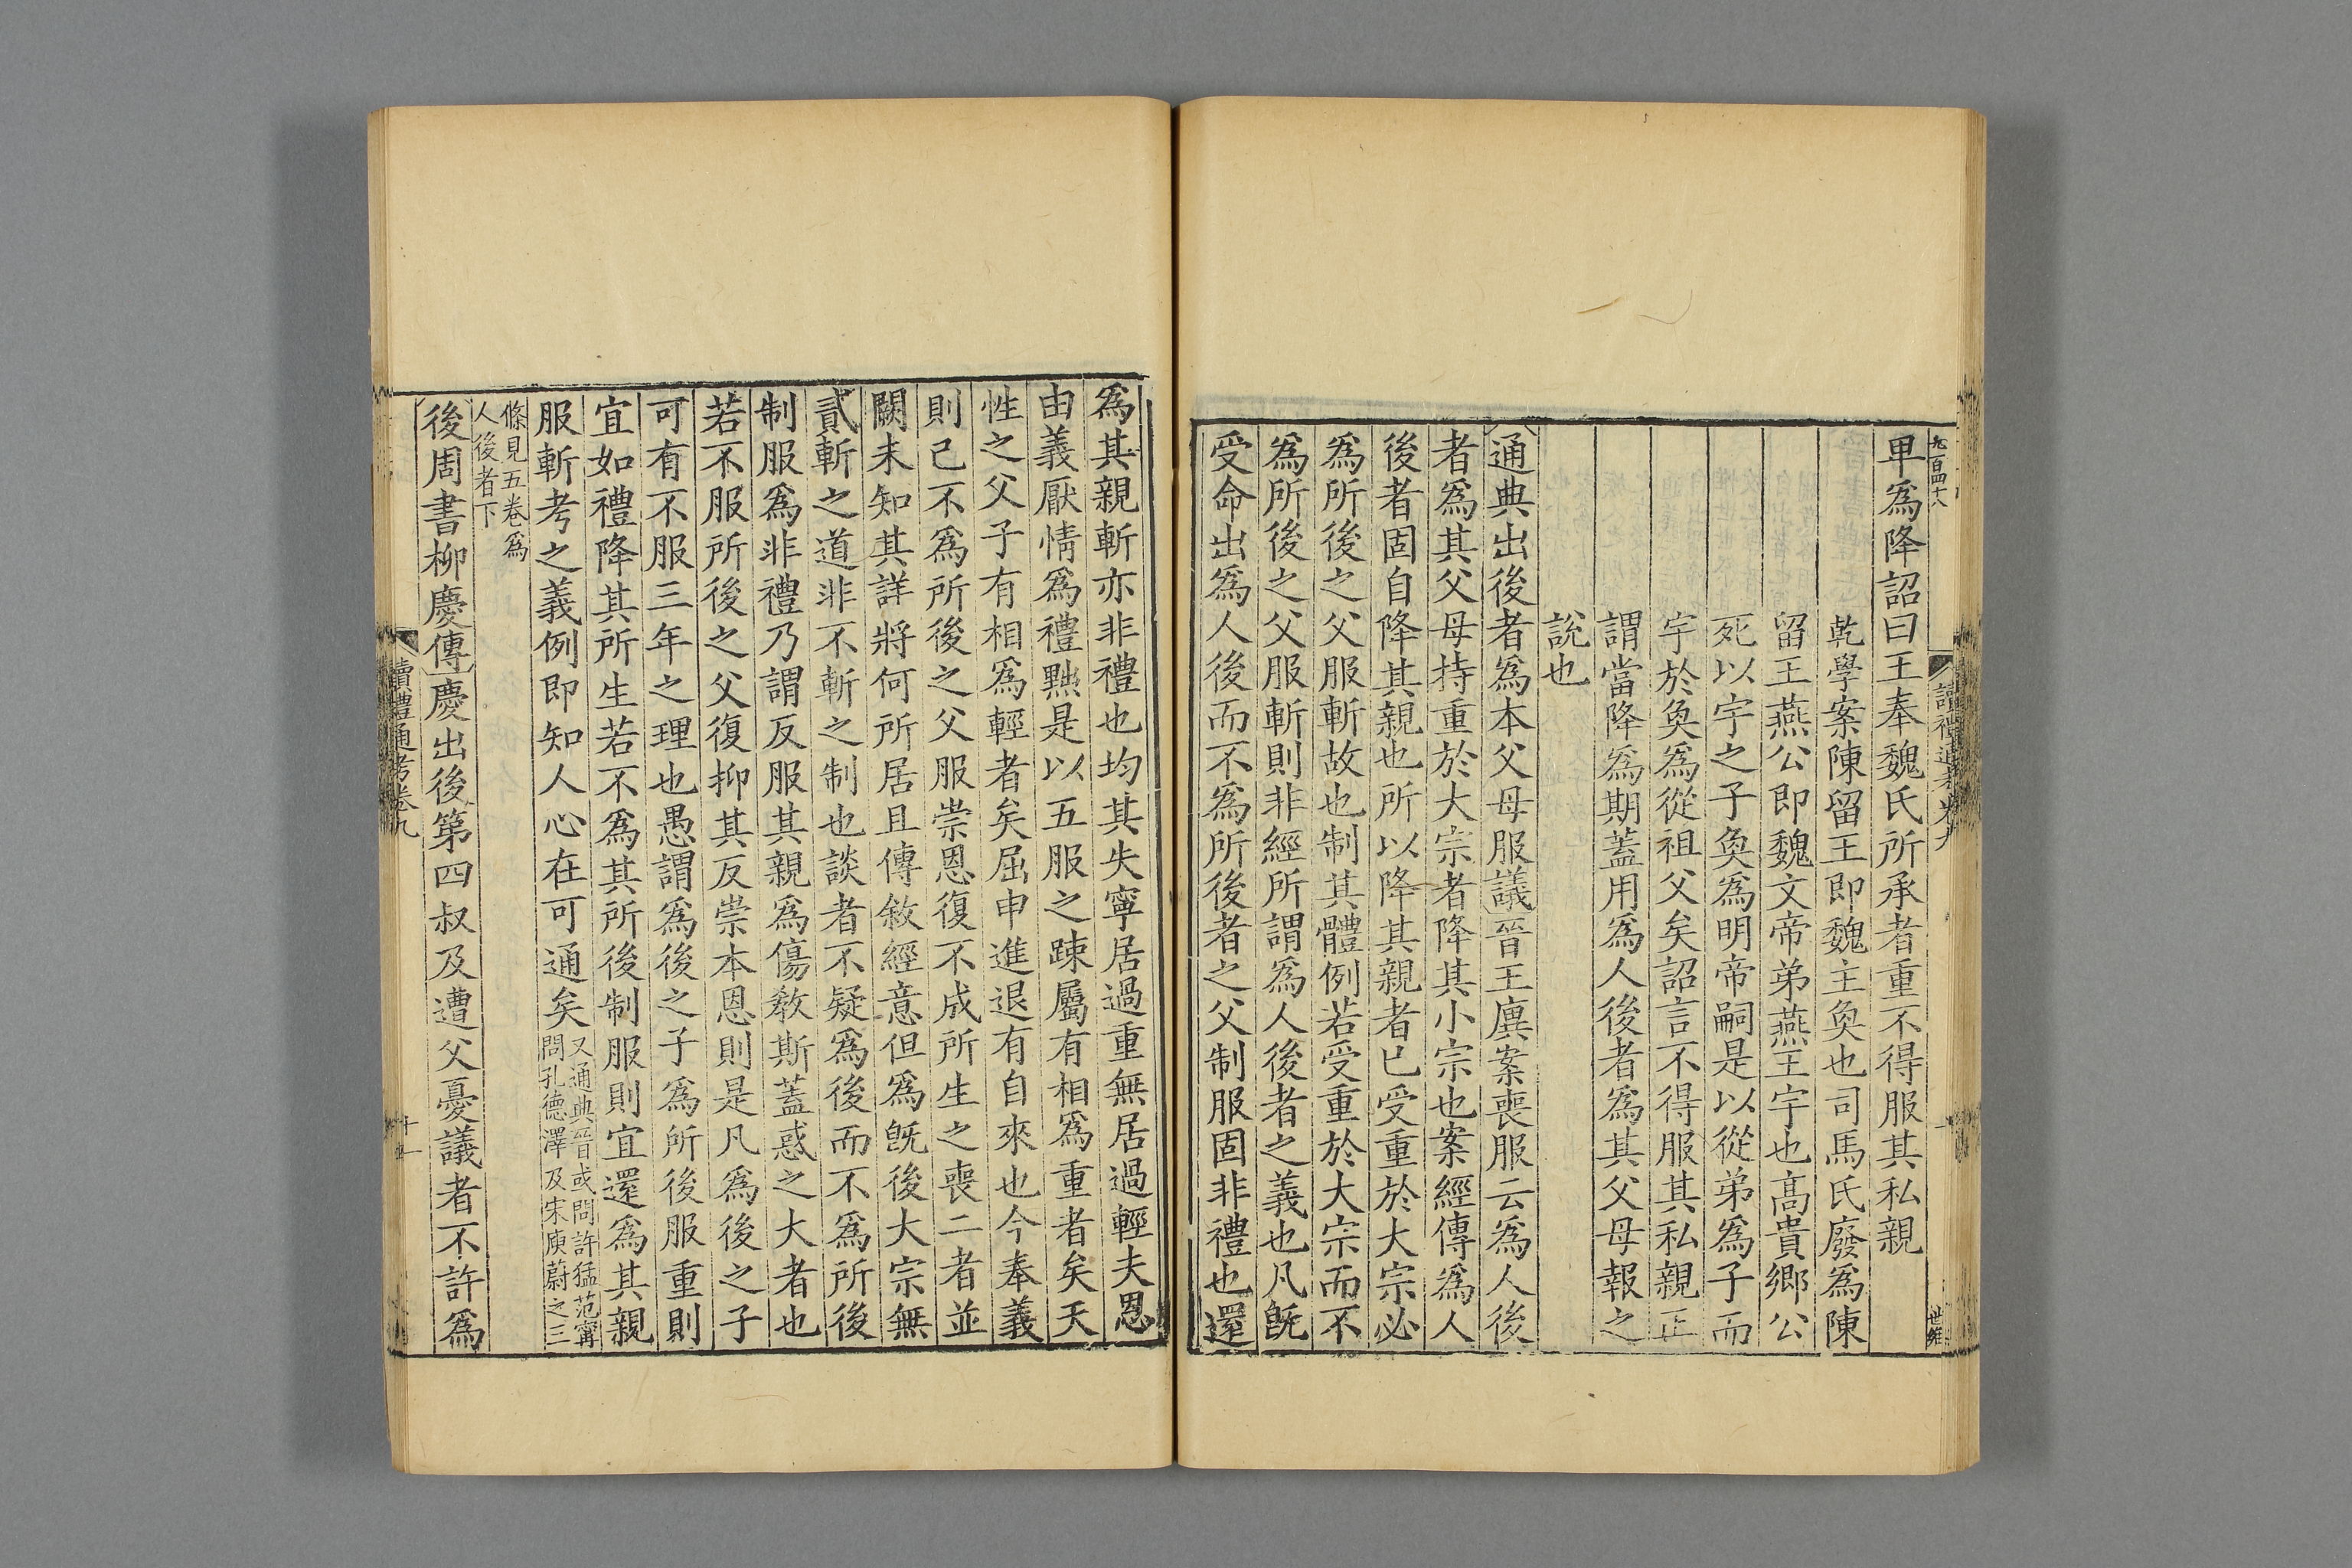 卑爲降詔曰王奉魏氏所承者重不得服其私親
乾學案陳留王即魏主奐也司馬氏廢爲陳
留王燕公即魏文帝弟燕王宇也髙貴鄉公
死以宇之子奐爲明帝嗣是以從弟爲子而
宇於奐爲從祖父矣詔言不得服其私親正
謂當降爲期蓋用爲人後者爲其父母報之
說也
通典出後者爲本父母服議晉王廙案喪服云爲人後
者爲其父母持重於大宗者降其小宗也案經傳爲人
後者固自降其親也所以降其親者已受重於大宗必
爲所後之父服斬故也制其體例若受重於大宗而不
爲所後之父服斬則非經所謂爲人後者之義也凡旣
受命出爲人後而不爲所後者之父制服固非禮也還
爲其親斬亦非禮也均其失寧居過重無居過輕夫恩
由義厭情爲禮黜是以五服之踈屬有相爲重者矣天
性之父子有相爲輕者矣屈申進退有自來也今奉義
則己不爲所後之父服崇恩復不成所生之喪二者並
闕未知其詳將何所居且傳敘經意但爲旣後大宗無
貳斬之道非不斬之制也談者不疑爲後而不爲所後
制服爲非禮乃謂反服其親爲傷敎斯蓋惑之大者也
若不服所後之父復抑其反崇本恩則是凡爲後之子
可有不服三年之理也愚謂爲後之子爲所後服重則
宜如禮降其所生若不爲其所後制服則宜還爲其親
服斬考之義例即知人心在可通矣又通典晉或問許猛范甯
問孔德澤及宋庾蔚之三
條見五卷爲
人後者下
後周書柳慶傳慶出後第四叔及遭父憂議者不許爲
讀禮通考卷九